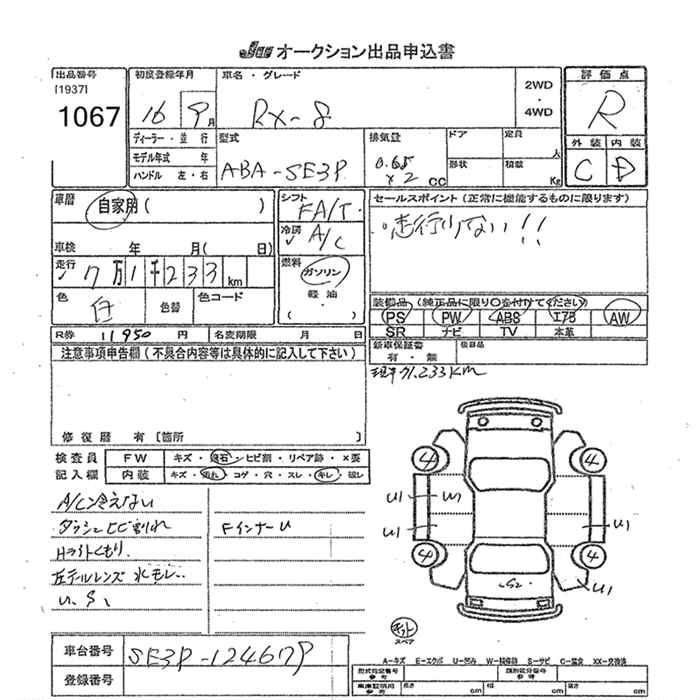 JAA オークション出品申込書
出品番号 初度登録年月 車名・グレード 2WD・4WD 評価点
[1937]
1067 16 9月 RX-8 R
ディーラー・並行 型式 排気量 ドア 定員 人 外装 内装
モデル年式 年 ABA-SE3P 0.65×2 CC 形状 積載 Kg C D
ハンドル 左・右
車歴 自家用( ) シフト FA/T セールスポイント(正常に機能するものに限ります)
冷房 A/C 走行少ない!!
車検 年 月( 日)
走行 7万1千233km 燃料 ガソリン
軽油
色 白 色替 色コード ・( ) 装備品(純正品に限り○を付けてください)
PS PW ABS エアB AW
SR ナビ TV 本革
R券 11950円 名変期限 月 日 新車保証書 有・無 後部品
注意事項申告欄(不具合内容等は具体的に記入して下さい)
現車71.233km
修復歴 有〔箇所 〕
検査員 FW キズ・飛石・ヒビ割・リペア跡・×要
記入欄 内装 キズ・汚れ・コゲ・穴・スレ・キレ・破レ
4 4
A/C冷えない
U1 W1
ダッシュヒビ割れ FインナーU
U1 U1
Hライトくもり
4 4
左テールレンズ 水モレ..
S2 U1
U、S、
スペア
車台番号 SE3P-124679
A-キズ E-エクボ U-凹ミ W-補修跡 S-サビ C-腐食 XX-交換済
型式指定番号 参考 類別区分番号 参考
登録番号
車庫証明用 参考 長さ cm 幅 cm 高さ cm